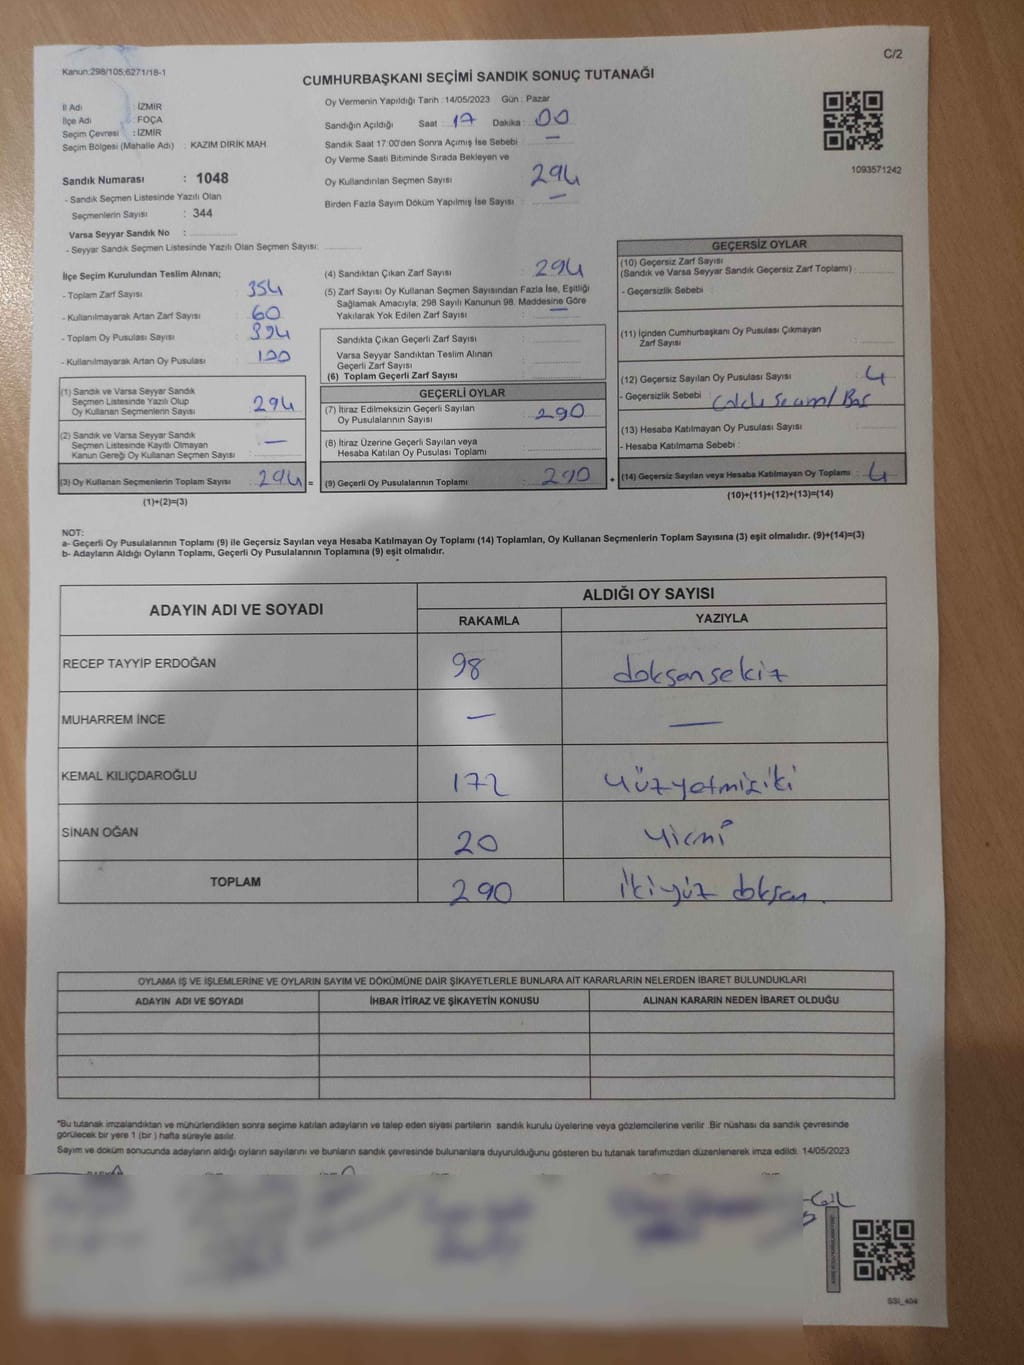 C/2
Kanun:298/105;6271/18-1
CUMHURBAŞKANI SEÇİMİ SANDIK SONUÇ TUTANAĞI
İl Adı : İZMİR
İlçe Adı : FOÇA
Seçim Çevresi : İZMİR
Seçim Bölgesi (Mahalle Adı) : KAZIM DİRİK MAH
Sandık Numarası : 1048
- Sandık Seçmen Listesinde Yazılı Olan
Seçmenlerin Sayısı : 344
Varsa Seyyar Sandık No :
- Seyyar Sandık Seçmen Listesinde Yazılı Olan Seçmen Sayısı:
Oy Vermenin Yapıldığı Tarih : 14/05/2023 Gün : Pazar
Sandığın Açıldığı Saat : 17 Dakika : 00
Sandık Saat 17:00'den Sonra Açımış İse Sebebi : —
Oy Verme Saati Bitiminde Sırada Bekleyen ve
Oy Kullandırılan Seçmen Sayısı : 294
Birden Fazla Sayım Döküm Yapılmış İse Sayısı : —
1093571242
İlçe Seçim Kurulundan Teslim Alınan;
- Toplam Zarf Sayısı : 354
- Kullanılmayarak Artan Zarf Sayısı : 60
- Toplam Oy Pusulası Sayısı : 394
- Kullanılmayarak Artan Oy Pusulası : 100
(1) Sandık ve Varsa Seyyar Sandık
Seçmen Listesinde Yazılı Olup
Oy Kullanan Seçmenlerin Sayısı : 294
(2) Sandık ve Varsa Seyyar Sandık
Seçmen Listesinde Kayıtlı Olmayan
Kanun Gereği Oy Kullanan Seçmen Sayısı : —
(3) Oy Kullanan Seçmenlerin Toplam Sayısı : 294 =
(1)+(2)=(3)
(4) Sandıktan Çıkan Zarf Sayısı : 294
(5) Zarf Sayısı Oy Kullanan Seçmen Sayısından Fazla İse, Eşitliği
Sağlamak Amacıyla; 298 Sayılı Kanunun 98. Maddesine Göre
Yakılarak Yok Edilen Zarf Sayısı : —
Sandıkta Çıkan Geçerli Zarf Sayısı :
Varsa Seyyar Sandıktan Teslim Alınan
Geçerli Zarf Sayısı :
(6) Toplam Geçerli Zarf Sayısı :
GEÇERLİ OYLAR
(7) İtiraz Edilmeksizin Geçerli Sayılan
Oy Pusulasının Sayısı : 290
(8) İtiraz Üzerine Geçerli Sayılan veya
Hesaba Katılan Oy Pusulası Toplamı :
(9) Geçerli Oy Pusulalarının Toplamı : 290 +
GEÇERSİZ OYLAR
(10) Geçersiz Zarf Sayısı
(Sandık ve Varsa Seyyar Sandık Geçersiz Zarf Toplamı) :
- Geçersizlik Sebebi :
(11) İçinden Cumhurbaşkanı Oy Pusulası Çıkmayan
Zarf Sayısı :
(12) Geçersiz Sayılan Oy Pusulası Sayısı : 4
- Geçersizlik Sebebi :
(13) Hesaba Katılmayan Oy Pusulası Sayısı :
- Hesaba Katılmama Sebebi :
(14) Geçersiz Sayılan veya Hesaba Katılmayan Oy Toplamı : 4
(10)+(11)+(12)+(13)=(14)
NOT:
a- Geçerli Oy Pusulalarının Toplamı (9) ile Geçersiz Sayılan veya Hesaba Katılmayan Oy Toplamı (14) Toplamları, Oy Kullanan Seçmenlerin Toplam Sayısına (3) eşit olmalıdır. (9)+(14)=(3)
b- Adayların Aldığı Oyların Toplamı, Geçerli Oy Pusulalarının Toplamına (9) eşit olmalıdır.
ADAYIN ADI VE SOYADI ALDIĞI OY SAYISI
RAKAMLA YAZIYLA
RECEP TAYYİP ERDOĞAN 98 doksansekiz
MUHARREM İNCE — —
KEMAL KILIÇDAROĞLU 172 Yüzyetmişiki
SİNAN OĞAN 20 Yirmi
TOPLAM 290 İkiyüz doksan.
OYLAMA İŞ VE İŞLEMLERİNE VE OYLARIN SAYIM VE DÖKÜMÜNE DAİR ŞİKAYETLERLE BUNLARA AİT KARARLARIN NELERDEN İBARET BULUNDUKLARI
ADAYIN ADI VE SOYADI İHBAR İTİRAZ VE ŞİKAYETİN KONUSU ALINAN KARARIN NEDEN İBARET OLDUĞU
*Bu tutanak imzalandıktan ve mühürlendikten sonra seçime katılan adayların ve talep eden siyasi partilerin sandık kurulu üyelerine veya gözlemcilerine verilir .Bir nüshası da sandık çevresinde
görülecek bir yere 1 (bir ) hafta süreyle asılır.
Sayım ve döküm sonucunda adayların aldığı oyların sayılarını ve bunların sandık çevresinde bulunanlara duyurulduğunu gösteren bu tutanak tarafımızdan düzenlenerek imza edildi. 14/05/2023
SSI_404